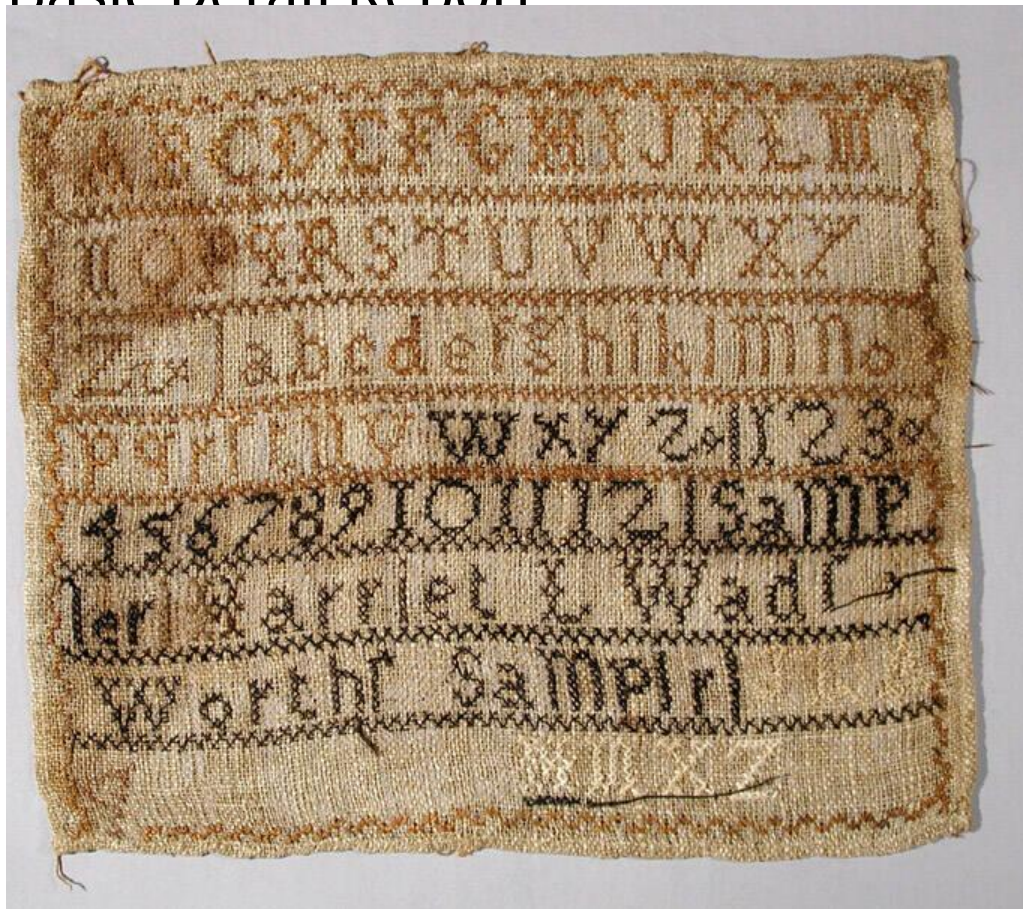 Basic Detail Report
A B C D E F G H I J K L M
N O P q R S T U V W X Y
Z & a b c d e f g h i k l m n o
p q r f t u v W X Y Z & 1 2 3
4 5 6 7 8 9 10 11 12 Samp
ler Harriet L Wad
Worth Samplr
W N X Z